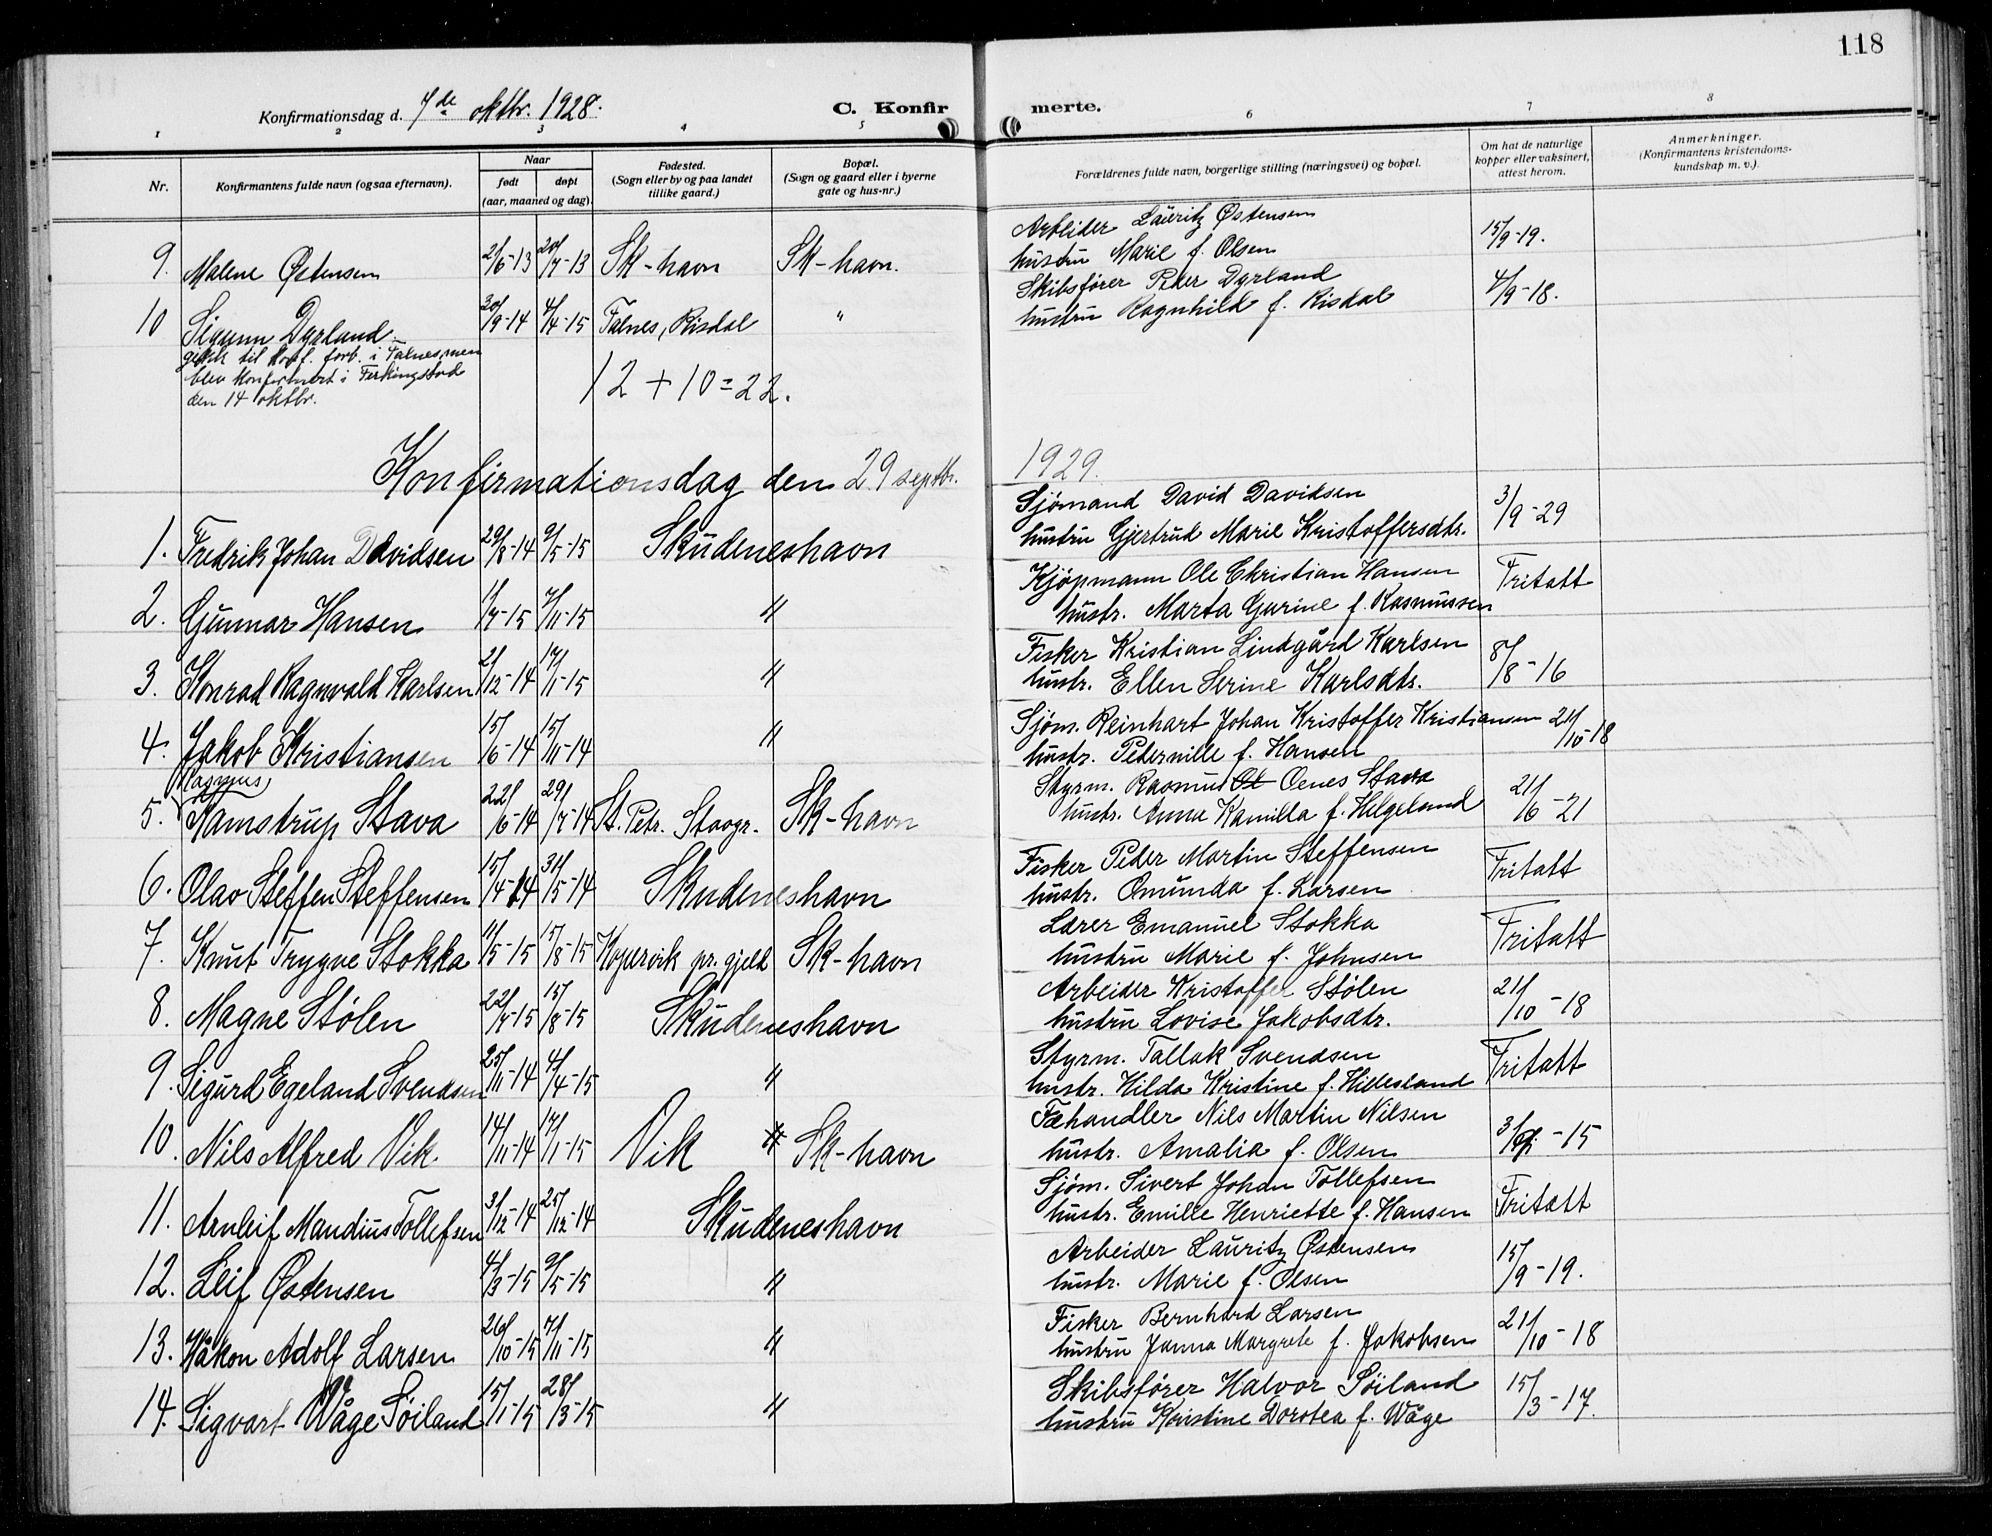 118
Konfirmationsdag d. 7de oktbr. 1928. C. Konfirmerte.
1 2 3 4 5 6 7 8
Nr. Konfirmantens fulde navn (ogsaa efternavn). Naar født døpt (aar, maaned og dag). Fødested. (Sogn eller by og paa landet tillike gaard.) Bopæl. (Sogn og gaard eller i byerne gate og hus-nr.) Forældrenes fulde navn, borgerlige stilling (næringsvei) og bopæl. Om hat de naturlige kopper eller vaksinert, attest herom. Anmerkninger. (Konfirmantens kristendomskundskap m. v.).
9. Malene Østensen 2/6-13 20/7-13 Sk-havn Sk-havn. Arbeider Lauritz Østensen 15/9-19.
hustru Marie f. Olsen
10 Sigunn Dyrland 30/9-14 4/4-15 Falnes, Risdal " Skibsfører Peder Dyrland 4/9-18.
hustru Ragnhild f. Risdal
gikk til konf. forb. i Falnes, men
blev konfirmert i Ferkingstad
den 14 oktbr.
12 + 10 = 22.
Konfirmationsdag den 29 septbr. 1929.
1. Fredrik Johan Davidsen 29/8-14 9/5-15 Skudeneshavn Sjömand David Davidsen 3/9-29
hustru Gjertrud Marie Kristoffersdtr.
2. Gunnar Hansen 1/7-15 7/11-15 " Kjöpmann Ole Christian Hansen Fritatt
hustr. Marta Gurine f. Rasmussen
3. Konrad Ragnvald Karlsen 2/12-14 17/1-15 " Fisker Kristian Lindgård Karlsen 8/8-16
hustr. Ellen Serine Karlsdtr.
4. Jakob Kristiansen 15/6-14 15/11-14 " Sjöm. Reinhart Johan Kristoffer Kristiansen 21/10-18
hustr. Pedernille f. Hansen
Rasmus
5. Kamstrup Stava 22/6-14 29/7-14 St. Petr. Stavgr. Sk-havn Styrm. Rasmus Ol Oenes Stava 21/6-21
hustr. Anna Kamilla f. Helgeland
6. Olav Steffen Steffensen 15/4-14 31/5-14 Skudeneshavn Fisker Peder Martin Steffensen Fritatt
hustr. Omunda f. Larsen
7. Knut Trygve Stokka 11/5-15 15/8-15 Kopervik pr.gjeld Sk-havn Lærer Emanuel Stokka Fritatt
hustru Marie f. Johnsen
8. Magne Stølen 22/7-15 15/8-15 Skudeneshavn Arbeider Kristoffer Stølen 21/10-18
hustru Lovise Jakobsdtr.
9. Sigurd Egeland Svendsen 25/11-14 4/4-15 " Styrm. Tallak Svendsen Fritatt
hustr. Hilda Kristine f. Hillesland
10. Nils Alfred Vik. 14/11-14 17/1-15 Vik Sk-havn Fæhandler Nils Martin Nilsen
hustr. Amalia f. Olsen
11. Arnleif Mandius Tollefsen 3/12-14 25/12-14 Skudeneshavn Sjöm. Sivert Johan Tollefsen Fritatt
hustr. Emilie Henriette f. Hansen
12. Leif Østensen 4/3-15 9/5-15 " Arbeider Lauritz Østensen 15/9-19.
hustr. Marie f. Olsen
13. Håkon Adolf Larsen 26/10-15 7/11-15 " Fisker Bernhard Larsen 21/10-18
hustru Janna Margrete f. Jakobsen
14. Sigvart Våge Söiland 15/1-15 28/3-15 " Skibsfører Halvor Söiland 15/3-17.
hustru Kristine Dorotea f. Wåge